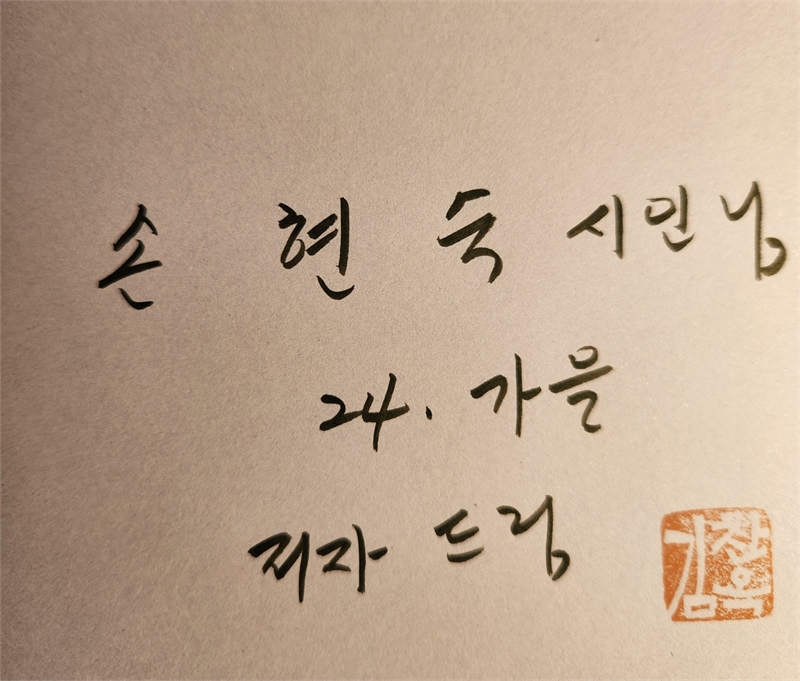 손 현 숙 시인님
24. 가을
저자 드림
김찬옥